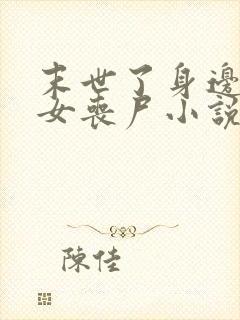 末世了身邊
女喪尸小說
陳佳